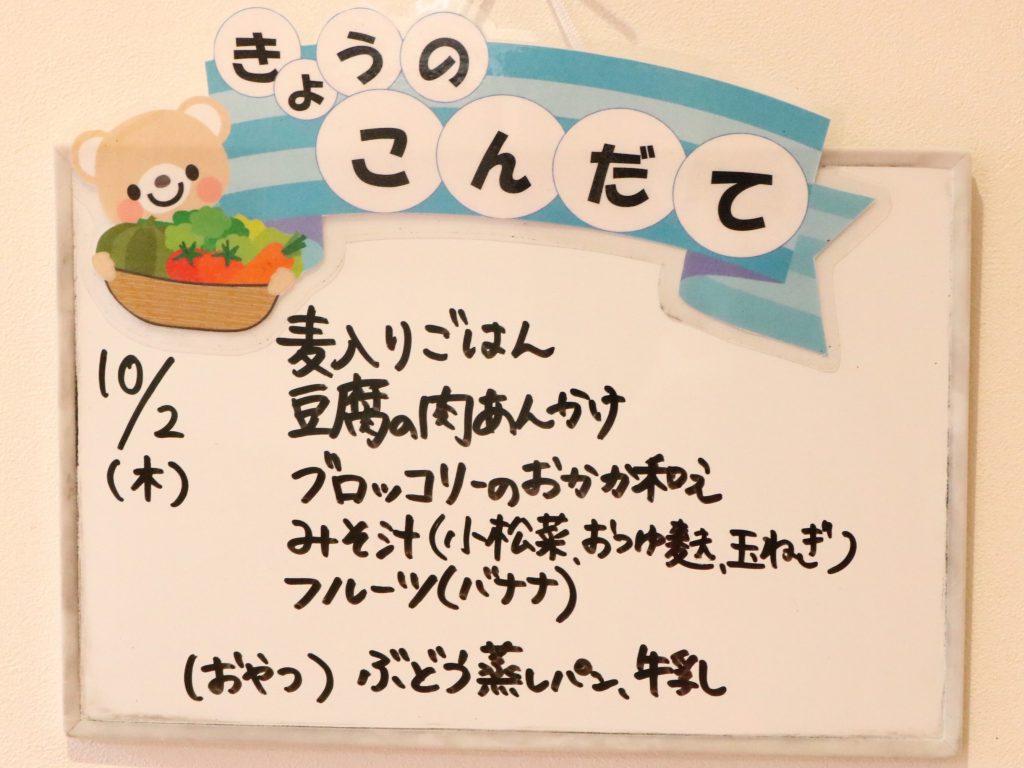 きょうの
こんだて
10/2
(木)
麦入りごはん
豆腐の肉あんかけ
ブロッコリーのおかか和え
みそ汁(小松菜、おつゆ麩、玉ねぎ)
フルーツ(バナナ)
(おやつ) ぶどう蒸しパン、牛乳